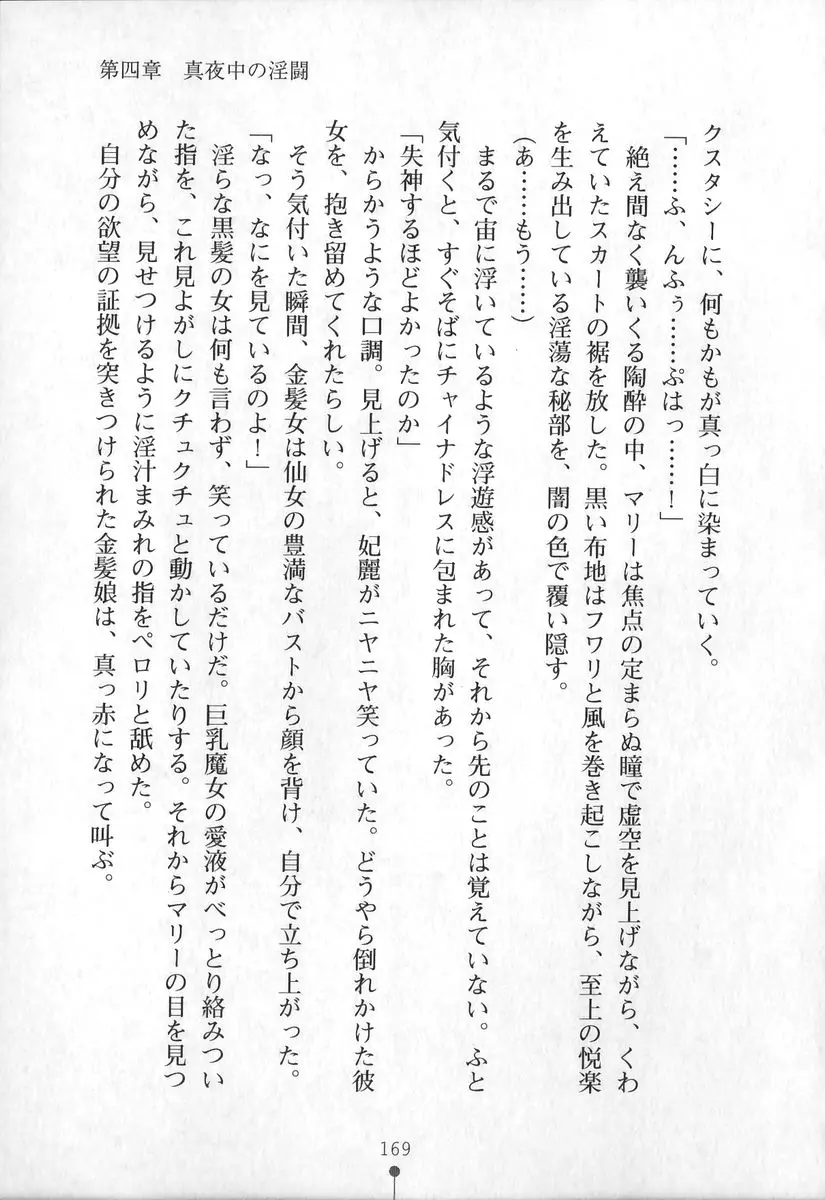 第四章　真夜中の淫闘
クスタシーに、何もかもが真っ白に染まっていく。
「……ふ、んふぅ……ぷはっ……！」
絶え間なく襲いくる陶酔の中、マリーは焦点の定まらぬ瞳で虚空を見上げながら、くわ
えていたスカートの裾を放した。黒い布地はフワリと風を巻き起こしながら、至上の悦楽
を生み出している淫蕩な秘部を、闇の色で覆い隠す。
（あ……もう……）
まるで宙に浮いているような浮遊感があって、それから先のことは覚えていない。ふと
気付くと、すぐそばにチャイナドレスに包まれた胸があった。
「失神するほどよかったのか」
からかうような口調。見上げると、妃麗がニヤニヤ笑っていた。どうやら倒れかけた彼
女を、抱き留めてくれたらしい。
そう気付いた瞬間、金髪女は仙女の豊満なバストから顔を背け、自分で立ち上がった。
「なっ、なにを見ているのよ！」
淫らな黒髪の女は何も言わず、笑っているだけだ。巨乳魔女の愛液がべっとり絡みつい
た指を、これ見よがしにクチュクチュと動かしていたりする。それからマリーの目を見つ
めながら、見せつけるように淫汁まみれの指をペロリと舐めた。
自分の欲望の証拠を突きつけられた金髪娘は、真っ赤になって叫ぶ。
169